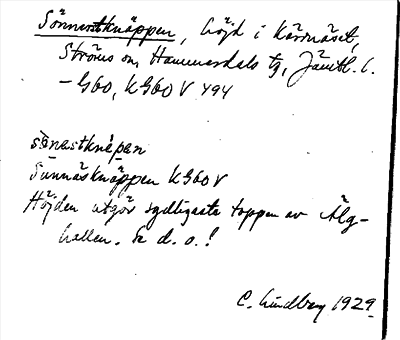 Sönnestknäppen, höjd i Kärrnäset,
Ströms sn, Hammerdals tg, Jämtl. l.
– G60, KG60 V 494
sönestknépen
Sunnäsknäppen KG60V
Höjden utgör sydligaste toppen av Älg-
hallen. Se d. o.!
C. Lindberg 1929